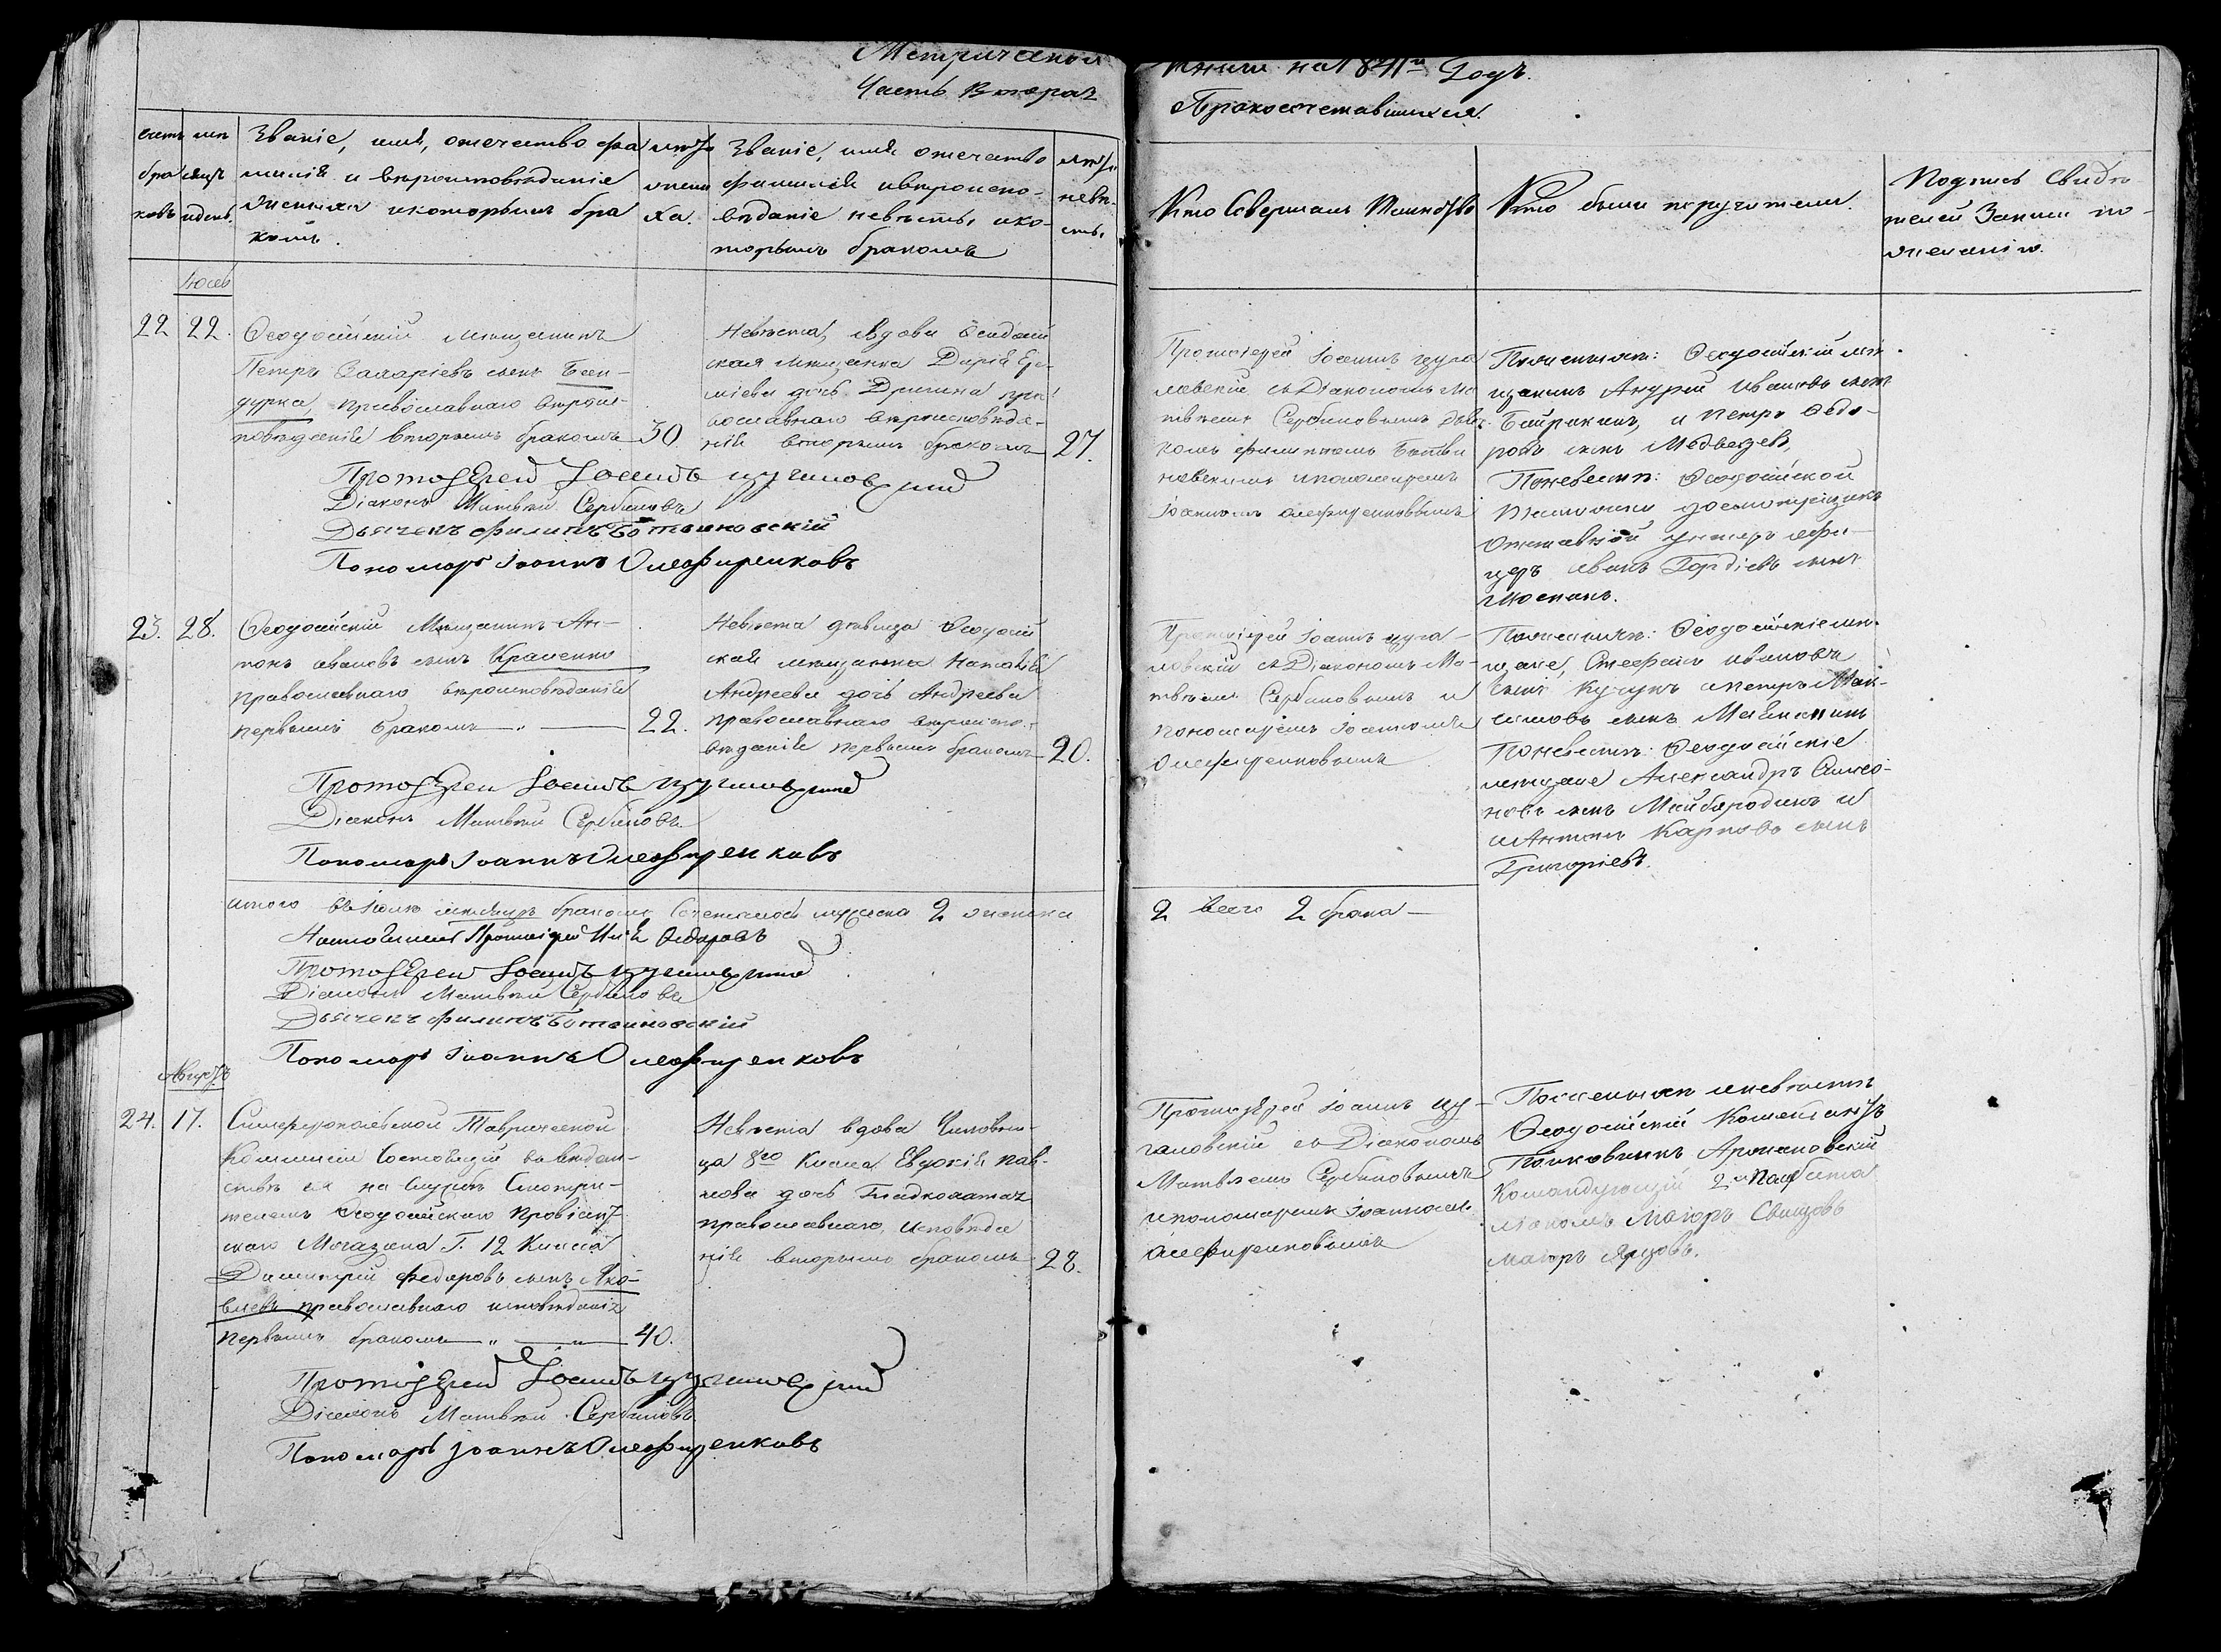 Метрической
Часть Вторая
книги на 1841й Годъ.
Бракосочетавшихся.
счетъ
браковъ
мѣсяцъ
и день.
Званіе, имя, отечество фа
милія и вѣроисповѣданіе
жениха и которымъ бра
комъ.
лѣта
жени
ха.
Званіе, имя отечество
фамилія и вѣроиспо-
вѣданіе невѣсты и ко-
торымъ бракомъ
лѣта
невѣ-
сты
Кто Совершалъ Таинство
Кто были поручители.
Подпись Свидѣ
телей Записи по
желанію.
Іюль
22 22.
Ѳеодосійскій мѣщанинъ
Петръ Захаріевъ сынъ Бан-
дурка, православнаго вѣроис-
повѣданія вторымъ бракомъ 30
Невѣста, вдова Ѳеодосій
ская мѣщанка Дарія Ере-
міева дочь Дригина пра-
вославнаго вѣроисповѣда-
нія вторымъ бракомъ 27.
Протоіерей Іоаннъ Цуга
ловскій съ Діакономъ Ма
твѣемъ Сербиновымъ дьяч
комъ Филиппомъ Ботви
новскимъ и пономаремъ
Іоанномъ Олефиренковымъ
По женихѣ: Ѳеодосійскій мѣ
щанинъ Андрей Ивановъ сынъ
Байракъ, и Петръ Ѳедо-
ровъ сынъ Медведевъ,
По невестѣ: Ѳеодосійской
Таможни досмотрщикъ
Отставной унтеръ офи-
церъ Иванъ Гордіевъ сынъ
Протоіерей Іоаннъ Цугаловскій
Діаконъ Матвѣй Сербиновъ
Дьячекъ Филиппъ Ботвиновскій
Пономарь Іоаннъ Олефиренковъ
23. 28.
Ѳеодосійскій Мѣщанинъ Ан-
тонъ Ивановъ сынъ Кравенко
православнаго вѣроисповѣданія
первымъ бракомъ 22.
Невѣста дѣвица Ѳеодосій
ская мѣщанка Наталія
Андреева дочь Андреева
православнаго вѣроиспо-
вѣданія первымъ бракомъ 20.
Протоіерей Іоаннъ Цуга-
ловскій съ Діакономъ Ма-
твѣемъ Сербиновымъ и
пономаремъ Іоанномъ
Олефиренковымъ
По женихѣ: Ѳеодосійскіе мѣ-
щане, Стефанъ Ивановъ
сынъ Кучукъ и Петръ Мак-
симовъ сынъ
По невестѣ: Ѳеодосійскіе
мѣщане Александръ Симео-
новъ сынъ Майбородинъ и
и Антонъ Карповъ сынъ
Григоріевъ.
Протоіерей Іоаннъ Цугаловскій
Діаконъ Матвѣй Сербиновъ
Пономарь Іоаннъ Олефиренковъ
Итого въ Іюлѣ мѣсяцѣ бракомъ Сочеталось мужеска 2 женска
2 всего 2 брака
Протоіерей Ѳедоровъ
Протоіерей Іоаннъ Цугаловскій
Діаконъ Матвѣй Сербиновъ
Дьячекъ Филиппъ Ботвиновскій
Пономарь Іоаннъ Олефиренковъ
Августъ
24. 17.
Симферопольской Таврической
Комисіи Состоящій въ вѣдом-
ствѣ ея на службѣ Смотри-
телемъ Ѳеодосійскаго Провіант-
скаго Магазина Г. 12 Класса
Димитрій Федоровъ сынъ Яко-
влевъ православнаго исповѣданія
первымъ бракомъ 40.
Невѣста вдова Чиновни-
ца 8го Класса Евдокія Пав-
лова дочь Гладколатая
православнаго исповѣда
нія вторымъ бракомъ 28.
Протоіерей Іоаннъ Цу-
галовскій съ Діакономъ
Матвѣемъ Сербиновымъ
и пономаремъ Іоанномъ
Олефиренковымъ
По женихѣ и невѣстѣ
Ѳеодосійскій Комендантъ
Полковникъ
Командующій 2м
Маіоръ Свищовъ
маіоръ Ярцовъ.
Протоіерей Іоаннъ Цугаловскій
Діаконъ Матвѣй Сербиновъ
Пономарь Іоаннъ Олефиренковъ